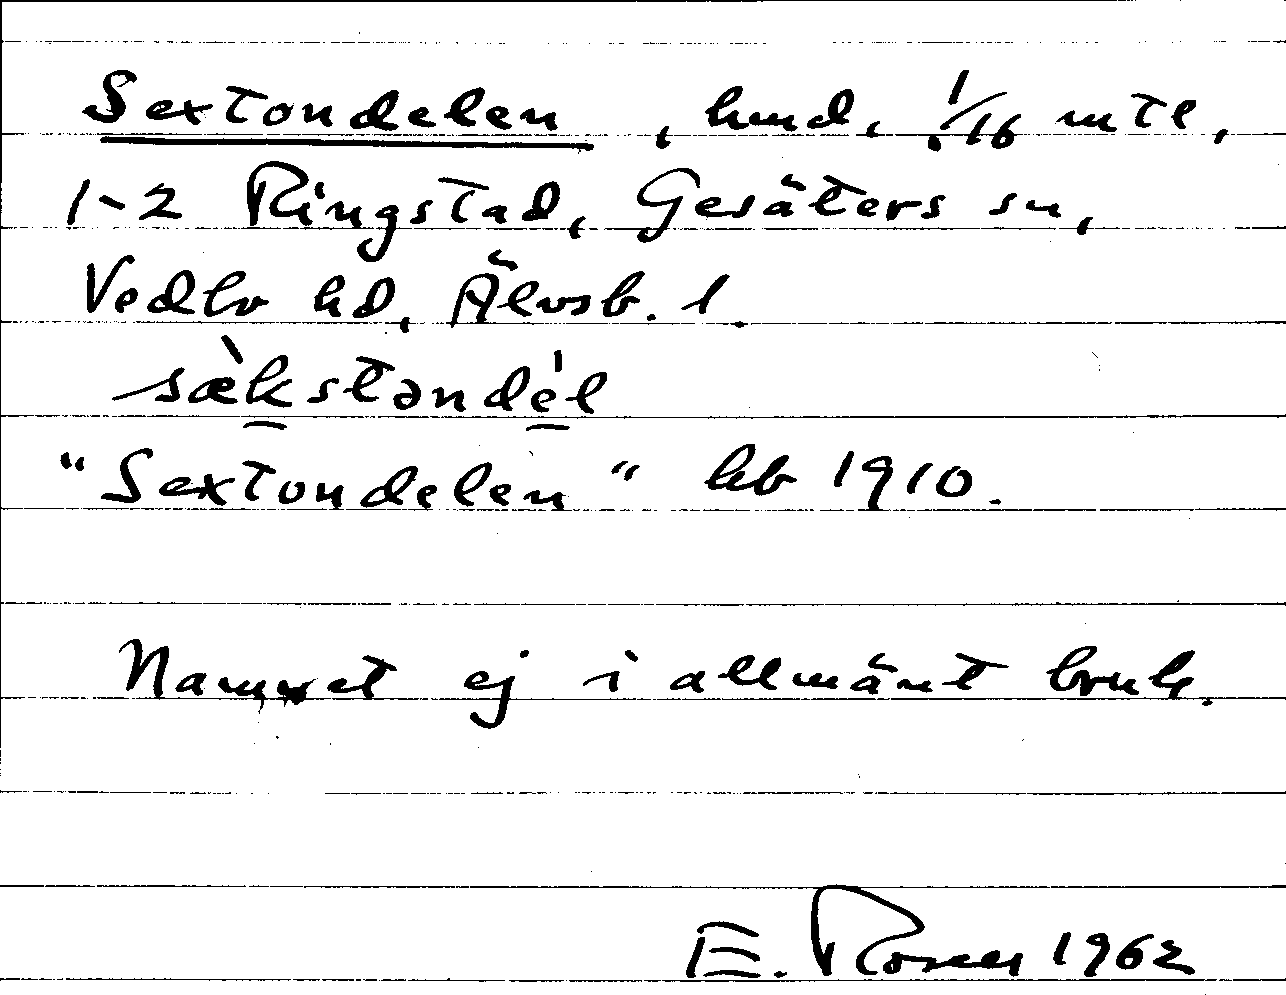 Sextondelen, hmd, 1/16 mtl,
1-2 Ringstad, Gesäters sn,
Vedbo hd, Älvsb. l.
sæ̀kstəndél
"Sextondelen" kb 1910.
Namnet ej i allmänt bruk.
E. Rosen 1962